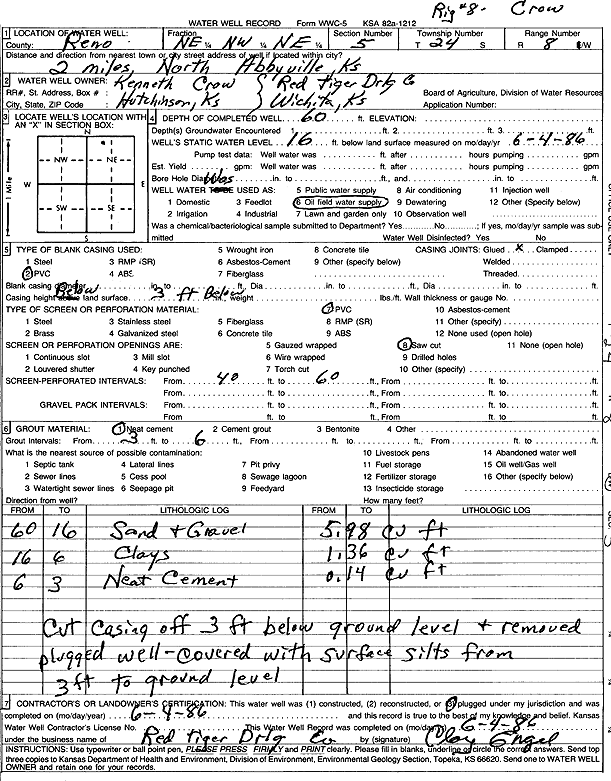 Rig #8- Crow
WATER WELL RECORD Form WWC-5 KSA 82a-1212
1 LOCATION OF WATER WELL: Fraction Section Number Township Number Range Number
County: Reno NE ¼ NW ¼ NE ¼ 5 T 24 S R 8 E/W
Distance and direction from nearest town or city street address of well if located within city?
2 miles, North Abbyville Ks
2 WATER WELL OWNER: Kenneth Crow Red Tiger Drlg Co
RR#, St. Address, Box # : Board of Agriculture, Division of Water Resources
City, State, ZIP Code : Hutchinson, Ks Wichita, Ks Application Number:
3 LOCATE WELL'S LOCATION WITH AN "X" IN SECTION BOX:
N
NW NE
W E
SW SE
S
1 Mile
4 DEPTH OF COMPLETED WELL. 60 ft. ELEVATION:
Depth(s) Groundwater Encountered 1 ft. 2. ft. 3. ft.
WELL'S STATIC WATER LEVEL 16 ft. below land surface measured on mo/day/yr 6-4-86
Pump test data: Well water was ft. after hours pumping gpm
Est. Yield gpm: Well water was ft. after hours pumping gpm
Bore Hole Diameter in. to ft., and in. to ft.
WELL WATER Was USED AS: 5 Public water supply 8 Air conditioning 11 Injection well
1 Domestic 3 Feedlot 6 Oil field water supply 9 Dewatering 12 Other (Specify below)
2 Irrigation 4 Industrial 7 Lawn and garden only 10 Observation well
Was a chemical/bacteriological sample submitted to Department? Yes No ; If yes, mo/day/yr sample was submitted
Water Well Disinfected? Yes No
5 TYPE OF BLANK CASING USED: 5 Wrought iron 8 Concrete tile CASING JOINTS: Glued X Clamped
1 Steel 3 RMP (SR) 6 Asbestos-Cement 9 Other (specify below) Welded
2 PVC 4 ABS 7 Fiberglass Threaded
Blank casing diameter in. to ft., Dia in. to ft., Dia in. to ft.
Casing height Below land surface 3 ft Below in., weight lbs./ft. Wall thickness or gauge No.
TYPE OF SCREEN OR PERFORATION MATERIAL: 7 PVC 10 Asbestos-cement
1 Steel 3 Stainless steel 5 Fiberglass 8 RMP (SR) 11 Other (specify)
2 Brass 4 Galvanized steel 6 Concrete tile 9 ABS 12 None used (open hole)
SCREEN OR PERFORATION OPENINGS ARE: 5 Gauzed wrapped 8 Saw cut 11 None (open hole)
1 Continuous slot 3 Mill slot 6 Wire wrapped 9 Drilled holes
2 Louvered shutter 4 Key punched 7 Torch cut 10 Other (specify)
SCREEN-PERFORATED INTERVALS: From 40 ft. to 60 ft., From ft. to ft.
From ft. to ft., From ft. to ft.
GRAVEL PACK INTERVALS: From ft. to ft., From ft. to ft.
From ft. to ft., From ft. to ft.
6 GROUT MATERIAL: 1 Neat cement 2 Cement grout 3 Bentonite 4 Other
Grout Intervals: From 3 ft. to 6 ft., From ft. to ft., From ft. to ft.
What is the nearest source of possible contamination: 10 Livestock pens 14 Abandoned water well
1 Septic tank 4 Lateral lines 7 Pit privy 11 Fuel storage 15 Oil well/Gas well
2 Sewer lines 5 Cess pool 8 Sewage lagoon 12 Fertilizer storage 16 Other (specify below)
3 Watertight sewer lines 6 Seepage pit 9 Feedyard 13 Insecticide storage
Direction from well? How many feet?
FROM TO LITHOLOGIC LOG FROM TO LITHOLOGIC LOG
60 16 Sand + Gravel 5.98 cu ft
16 6 Clays 1.36 cu ft
6 3 Neat Cement 0.14 cu ft
Cut casing off 3 ft below ground level + removed
plugged well-covered with surface silts from
3ft to ground level
7 CONTRACTOR'S OR LANDOWNER'S CERTIFICATION: This water well was (1) constructed, (2) reconstructed, or (3) plugged under my jurisdiction and was
completed on (mo/day/year) 6-4-86 and this record is true to the best of my knowledge and belief. Kansas
Water Well Contractor's License No. This Water Well Record was completed on (mo/day/yr) 6-4-86
under the business name of Red Tiger Drlg Co by (signature) Clay Engel
INSTRUCTIONS: Use typewriter or ball point pen, PLEASE PRESS FIRMLY and PRINT clearly. Please fill in blanks, underline or circle the correct answers. Send top
three copies to Kansas Department of Health and Environment, Division of Environment, Environmental Geology Section, Topeka, KS 66620. Send one to WATER WELL
OWNER and retain one for your records.